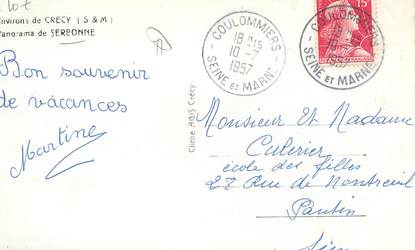 Environs de CRÉCY (S & M)
Panorama de SERBONNE
Bon souvenir
de vacances
Martine
Cliché ABIS Crécy
COULOMMIERS
18 H 15
10 - 7
1957
SEINE ET MARNE
15
Monsieur Et Madame
école des filles
27 Rue de Montreuil
Pantin